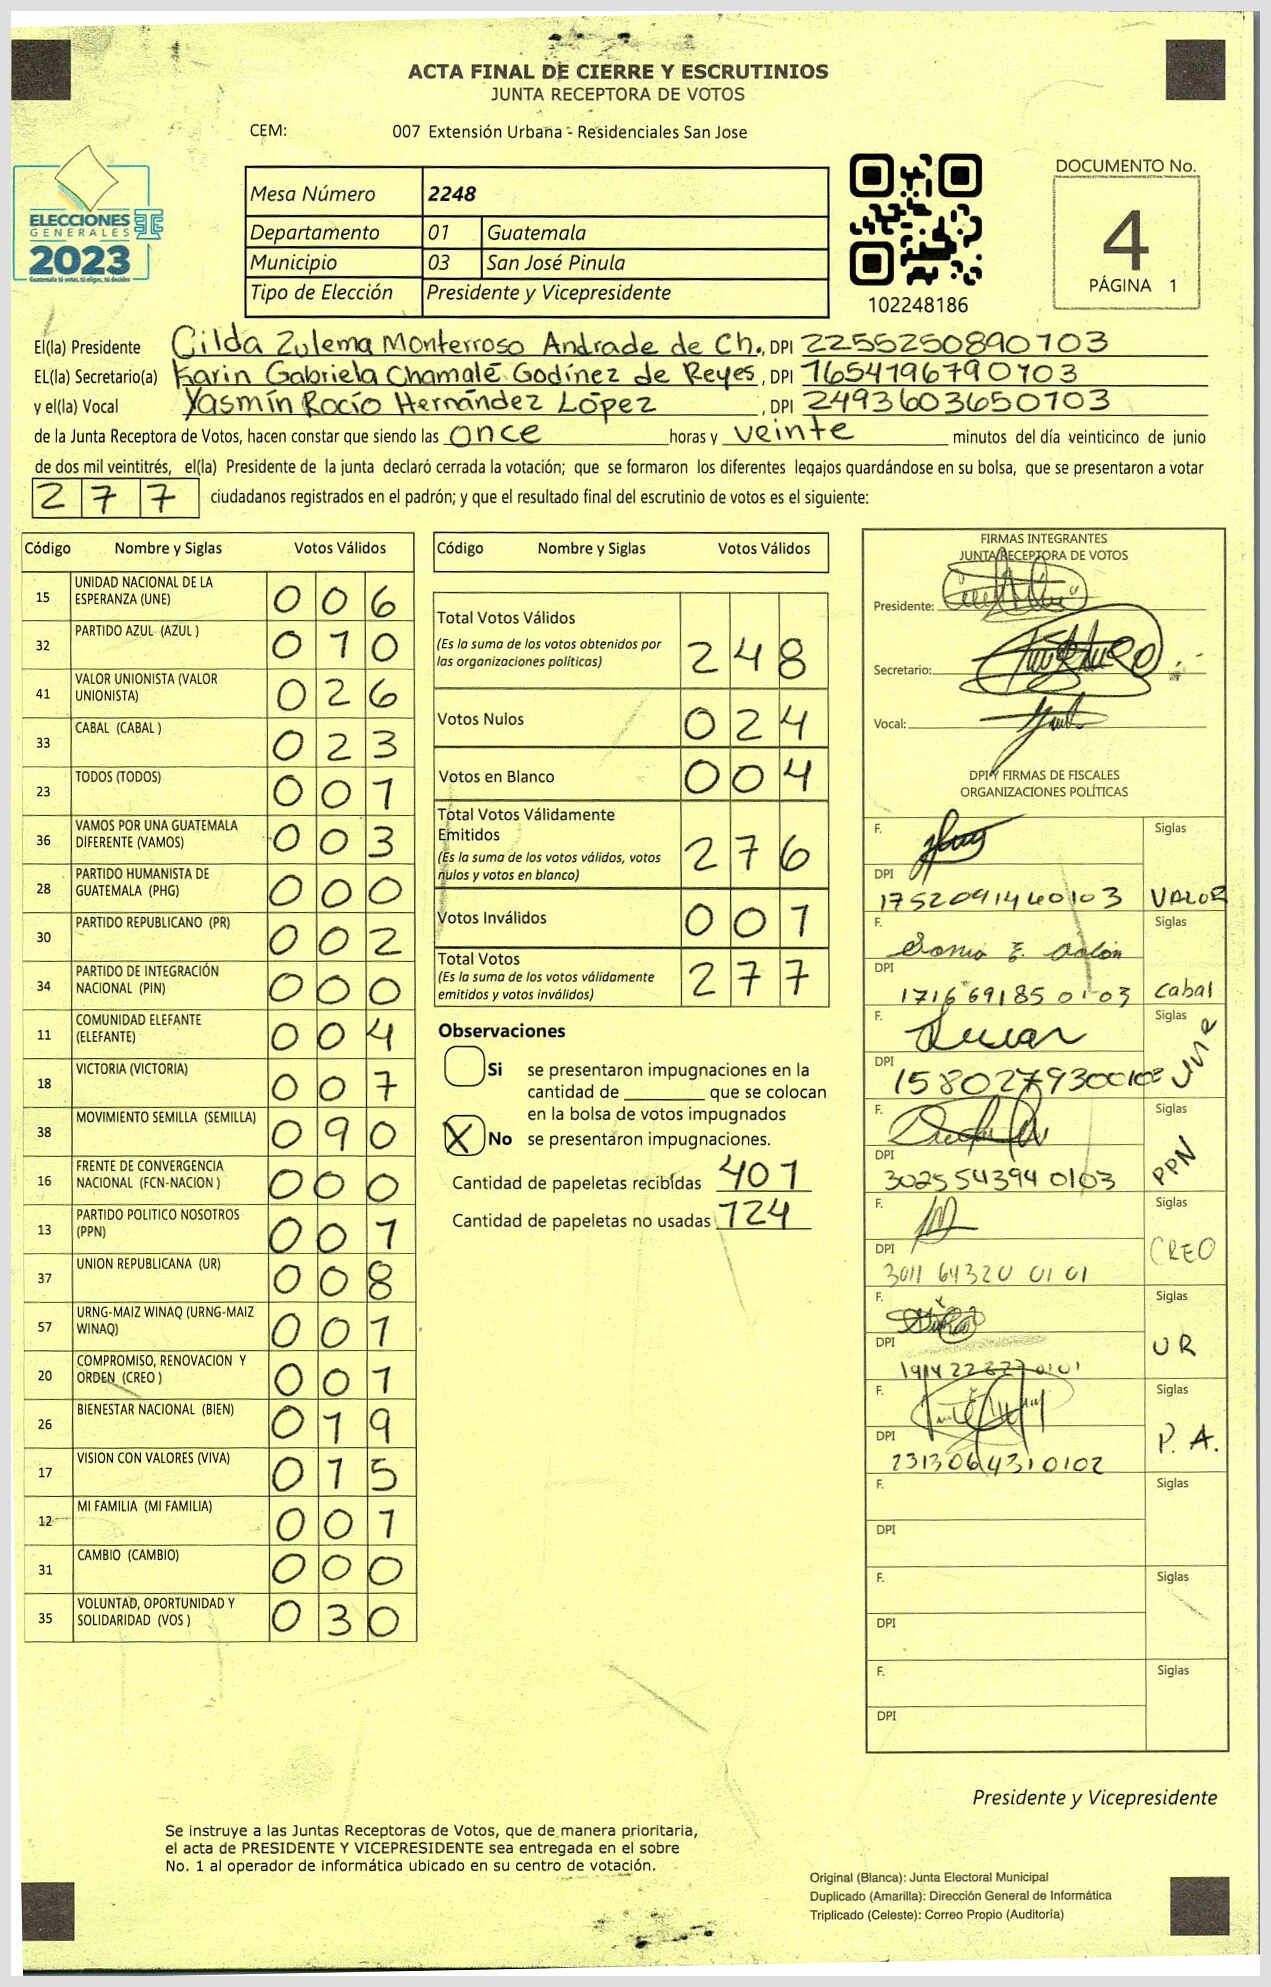 ACTA FINAL DE CIERRE Y ESCRUTINIOS
JUNTA RECEPTORA DE VOTOS
CEM: 007 Extensión Urbana - Residenciales San Jose
ELECCIONES
GENERALES
2023
Guatemala tú votas, tú eliges, tú decides
Mesa Número 2248
Departamento 01 Guatemala
Municipio 03 San José Pinula
Tipo de Elección Presidente y Vicepresidente
102248186
DOCUMENTO No.
4
PÁGINA 1
El(la) Presidente Gilda Zulema Monterroso Andrade de Ch., DPI 2255250890103
EL(la) Secretario(a) Karin Gabriela Chamalé Godínez de Reyes, DPI 1654196790103
y el(la) Vocal Yasmín Rocío Hernández López, DPI 2493603650103
de la Junta Receptora de Votos, hacen constar que siendo las once horas y veinte minutos del día veinticinco de junio
de dos mil veintitrés, el(la) Presidente de la junta declaró cerrada la votación; que se formaron los diferentes legajos guardándose en su bolsa, que se presentaron a votar
277 ciudadanos registrados en el padrón; y que el resultado final del escrutinio de votos es el siguiente:
Código Nombre y Siglas Votos Válidos
15 UNIDAD NACIONAL DE LA ESPERANZA (UNE) 006
32 PARTIDO AZUL (AZUL ) 010
41 VALOR UNIONISTA (VALOR UNIONISTA) 026
33 CABAL (CABAL ) 023
23 TODOS (TODOS) 001
36 VAMOS POR UNA GUATEMALA DIFERENTE (VAMOS) 003
28 PARTIDO HUMANISTA DE GUATEMALA (PHG) 000
30 PARTIDO REPUBLICANO (PR) 002
34 PARTIDO DE INTEGRACIÓN NACIONAL (PIN) 000
11 COMUNIDAD ELEFANTE (ELEFANTE) 004
18 VICTORIA (VICTORIA) 007
38 MOVIMIENTO SEMILLA (SEMILLA) 090
16 FRENTE DE CONVERGENCIA NACIONAL (FCN-NACION ) 000
13 PARTIDO POLITICO NOSOTROS (PPN) 001
37 UNION REPUBLICANA (UR) 008
57 URNG-MAIZ WINAQ (URNG-MAIZ WINAQ) 001
20 COMPROMISO, RENOVACION Y ORDEN (CREO ) 001
26 BIENESTAR NACIONAL (BIEN) 019
17 VISION CON VALORES (VIVA) 015
12 MI FAMILIA (MI FAMILIA) 001
31 CAMBIO (CAMBIO) 000
35 VOLUNTAD, OPORTUNIDAD Y SOLIDARIDAD (VOS ) 030
Código Nombre y Siglas Votos Válidos
Total Votos Válidos 248
(Es la suma de los votos obtenidos por las organizaciones políticas)
Votos Nulos 024
Votos en Blanco 004
Total Votos Válidamente Emitidos 276
(Es la suma de los votos válidos, votos nulos y votos en blanco)
Votos Inválidos 001
Total Votos 277
(Es la suma de los votos válidamente emitidos y votos inválidos)
Observaciones
Si se presentaron impugnaciones en la
cantidad de ________ que se colocan
en la bolsa de votos impugnados
X No se presentaron impugnaciones.
Cantidad de papeletas recibidas 401
Cantidad de papeletas no usadas 124
FIRMAS INTEGRANTES
JUNTA RECEPTORA DE VOTOS
Presidente:
Secretario:
Vocal:
DPI Y FIRMAS DE FISCALES
ORGANIZACIONES POLÍTICAS
F. Siglas
DPI
1752091460103 VALOR
F. Siglas
DPI
1716691850103 Cabal
F. Siglas
DPI
1580279300103 Une
F. Siglas
DPI
3025543940103 PPN
F. Siglas
DPI
3011643200101 CREO
F. Siglas
DPI
UR
F. Siglas
DPI
2313064310102 P.A.
F. Siglas
DPI
F. Siglas
DPI
F. Siglas
DPI
Presidente y Vicepresidente
Se instruye a las Juntas Receptoras de Votos, que de manera prioritaria,
el acta de PRESIDENTE Y VICEPRESIDENTE sea entregada en el sobre
No. 1 al operador de informática ubicado en su centro de votación.
Original (Blanca): Junta Electoral Municipal
Duplicado (Amarilla): Dirección General de Informática
Triplicado (Celeste): Correo Propio (Auditoría)